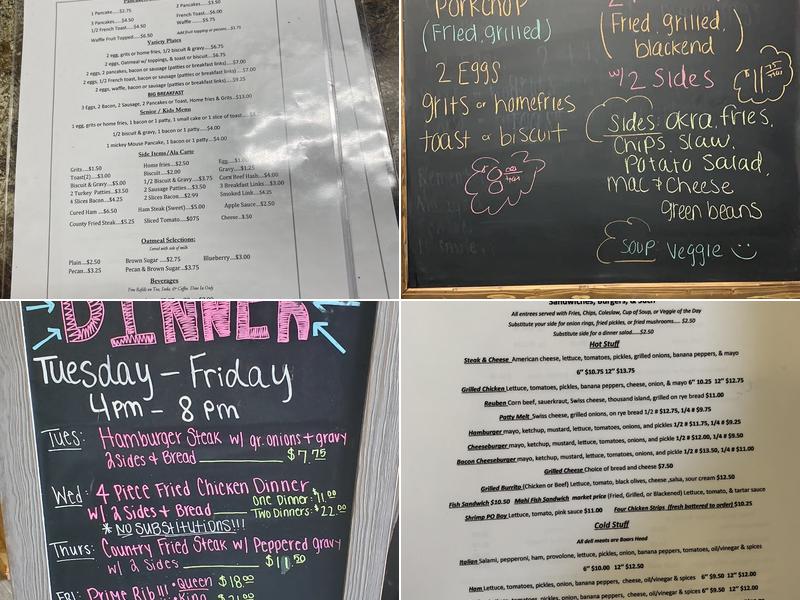 Pancakes
1 Pancake....$2.75
2 Pancakes....$3.50
3 Pancakes....$4.50
French Toast....$6.00
1/2 French Toast....$4.50
Waffle....$5.75
Waffle Fruit Topped....$6.50
Add fruit topping or pecans....$1.75
Variety Plates
2 egg, grits or home fries, 1/2 biscuit & gravy....$6.75
2 eggs, Oatmeal w/ toppings, & toast or biscuit....$6.75
2 eggs, 2 pancakes, bacon or sausage (patties or breakfast links)....$7.00
2 eggs, 1/2 French toast, bacon or sausage (patties or breakfast links)....$7.00
2 eggs, waffle, bacon or sausage (patties or breakfast links)....$9.25
BIG BREAKFAST
3 Eggs, 2 Bacon, 2 Sausage, 2 Pancakes or Toast, Home fries & Grits...$13.00
Senior / Kids Menu
1 egg, grits or home fries, 1 bacon or 1 patty, 1 small cake or 1 slice of toast....
1/2 biscuit & gravy, 1 bacon or 1 patty....$4.00
1 mickey Mouse Pancake, 1 bacon or 1 patty....$4.00
Side Items/Ala Carte
Grits....$1.50
Home fries...$2.50
Egg....
Toast(2)....$3.00
Biscuit....$2.00
Gravy....$1.25
Biscuit & Gravy....$5.00
1/2 Biscuit & Gravy....$3.75
Corn Beef Hash....$4.00
2 Turkey Patties....$3.50
2 Sausage Patties....$3.50
3 Breakfast Links....$3.00
4 Slices Bacon....$4.25
2 Slices Bacon....$2.99
Smoked Link....$4.25
Cured Ham ....$6.50
Ham Steak (Sweet)....$5.00
Apple Sauce....$2.50
County Fried Steak....$5.25
Sliced Tomato....$075
Cheese....$.50
Oatmeal Selections:
Served with side of milk
Plain....$2.50
Brown Sugar ....$2.75
Blueberry....$3.00
Pecan....$3.25
Pecan & Brown Sugar ....$3.75
Beverages
Free Refills on Tea, Soda, & Coffee Dine In Only
Porkchop
(Fried, grilled)
2 Eggs
grits or homefries
toast or biscuit
(Fried, grilled, blackend)
w/ 2 Sides
$11.75 +tax
Sides: okra, fries,
chips, slaw,
Potato Salad,
mac & cheese
green beans
Soup: Veggie
DINNER
Tuesday - Friday
4pm - 8pm
Tues: Hamburger Steak w/ gr. onions + gravy
2 Sides + Bread $7.75
Wed: 4 Piece Fried Chicken Dinner
w/ 2 Sides + Bread One Dinner: $11.00
Two Dinners: $22.00
* NO SUBSTITUTIONS!!!
Thurs: Country Fried Steak w/ Peppered gravy
w/ 2 Sides $11.50
Fri: Prime Rib!!! • Queen $18.00
• King $21.00
Sandwiches, Burgers, & Such
All entrees served with Fries, Chips, Coleslaw, Cup of Soup, or Veggie of the Day
Substitute your side for onion rings, fried pickles, or fried mushrooms..... $2.50
Substitute side for a dinner salad.....$2.50
Hot Stuff
Steak & Cheese American cheese, lettuce, tomatoes, pickles, grilled onions, banana peppers, & mayo
6" $10.75 12" $13.75
Grilled Chicken Lettuce, tomatoes, pickles, banana peppers, cheese, onion, & mayo 6" 10.25 12" $12.75
Reuben Corn beef, sauerkraut, Swiss cheese, thousand island, grilled on rye bread $11.00
Patty Melt Swiss cheese, grilled onions, on rye bread 1/2 # $12.75, 1/4 # $9.75
Hamburger mayo, ketchup, mustard, lettuce, tomatoes, onions, and pickles 1/2 # $11.75, 1/4 # $9.25
Cheeseburger mayo, ketchup, mustard, lettuce, tomatoes, onions, and pickle 1/2 # $12.00, 1/4 # $9.50
Bacon Cheeseburger mayo, ketchup, mustard, lettuce, tomatoes, onions, and pickle 1/2 # $13.50, 1/4 # $11.00
Grilled Cheese Choice of bread and cheese $7.50
Grilled Burrito (Chicken or Beef) Lettuce, tomato, black olives, cheese ,salsa, sour cream $12.50
Fish Sandwich $10.50 Mahi Fish Sandwich market price (Fried, Grilled, or Blackened) Lettuce, tomato, & tartar sauce
Shrimp PO Boy Lettuce, tomato, pink sauce $11.00 Four Chicken Strips (fresh battered to order) $10.25
Cold Stuff
All deli meats are Boars Head
Italian Salami, pepperoni, ham, provolone, lettuce, pickles, onion, banana peppers, tomatoes, oil/vinegar & spices
6" $10.00 12" $12.50
Ham Lettuce, tomatoes, pickles, onions, banana peppers, cheese, oil/vinegar & spices 6" $9.50 12" $12.00